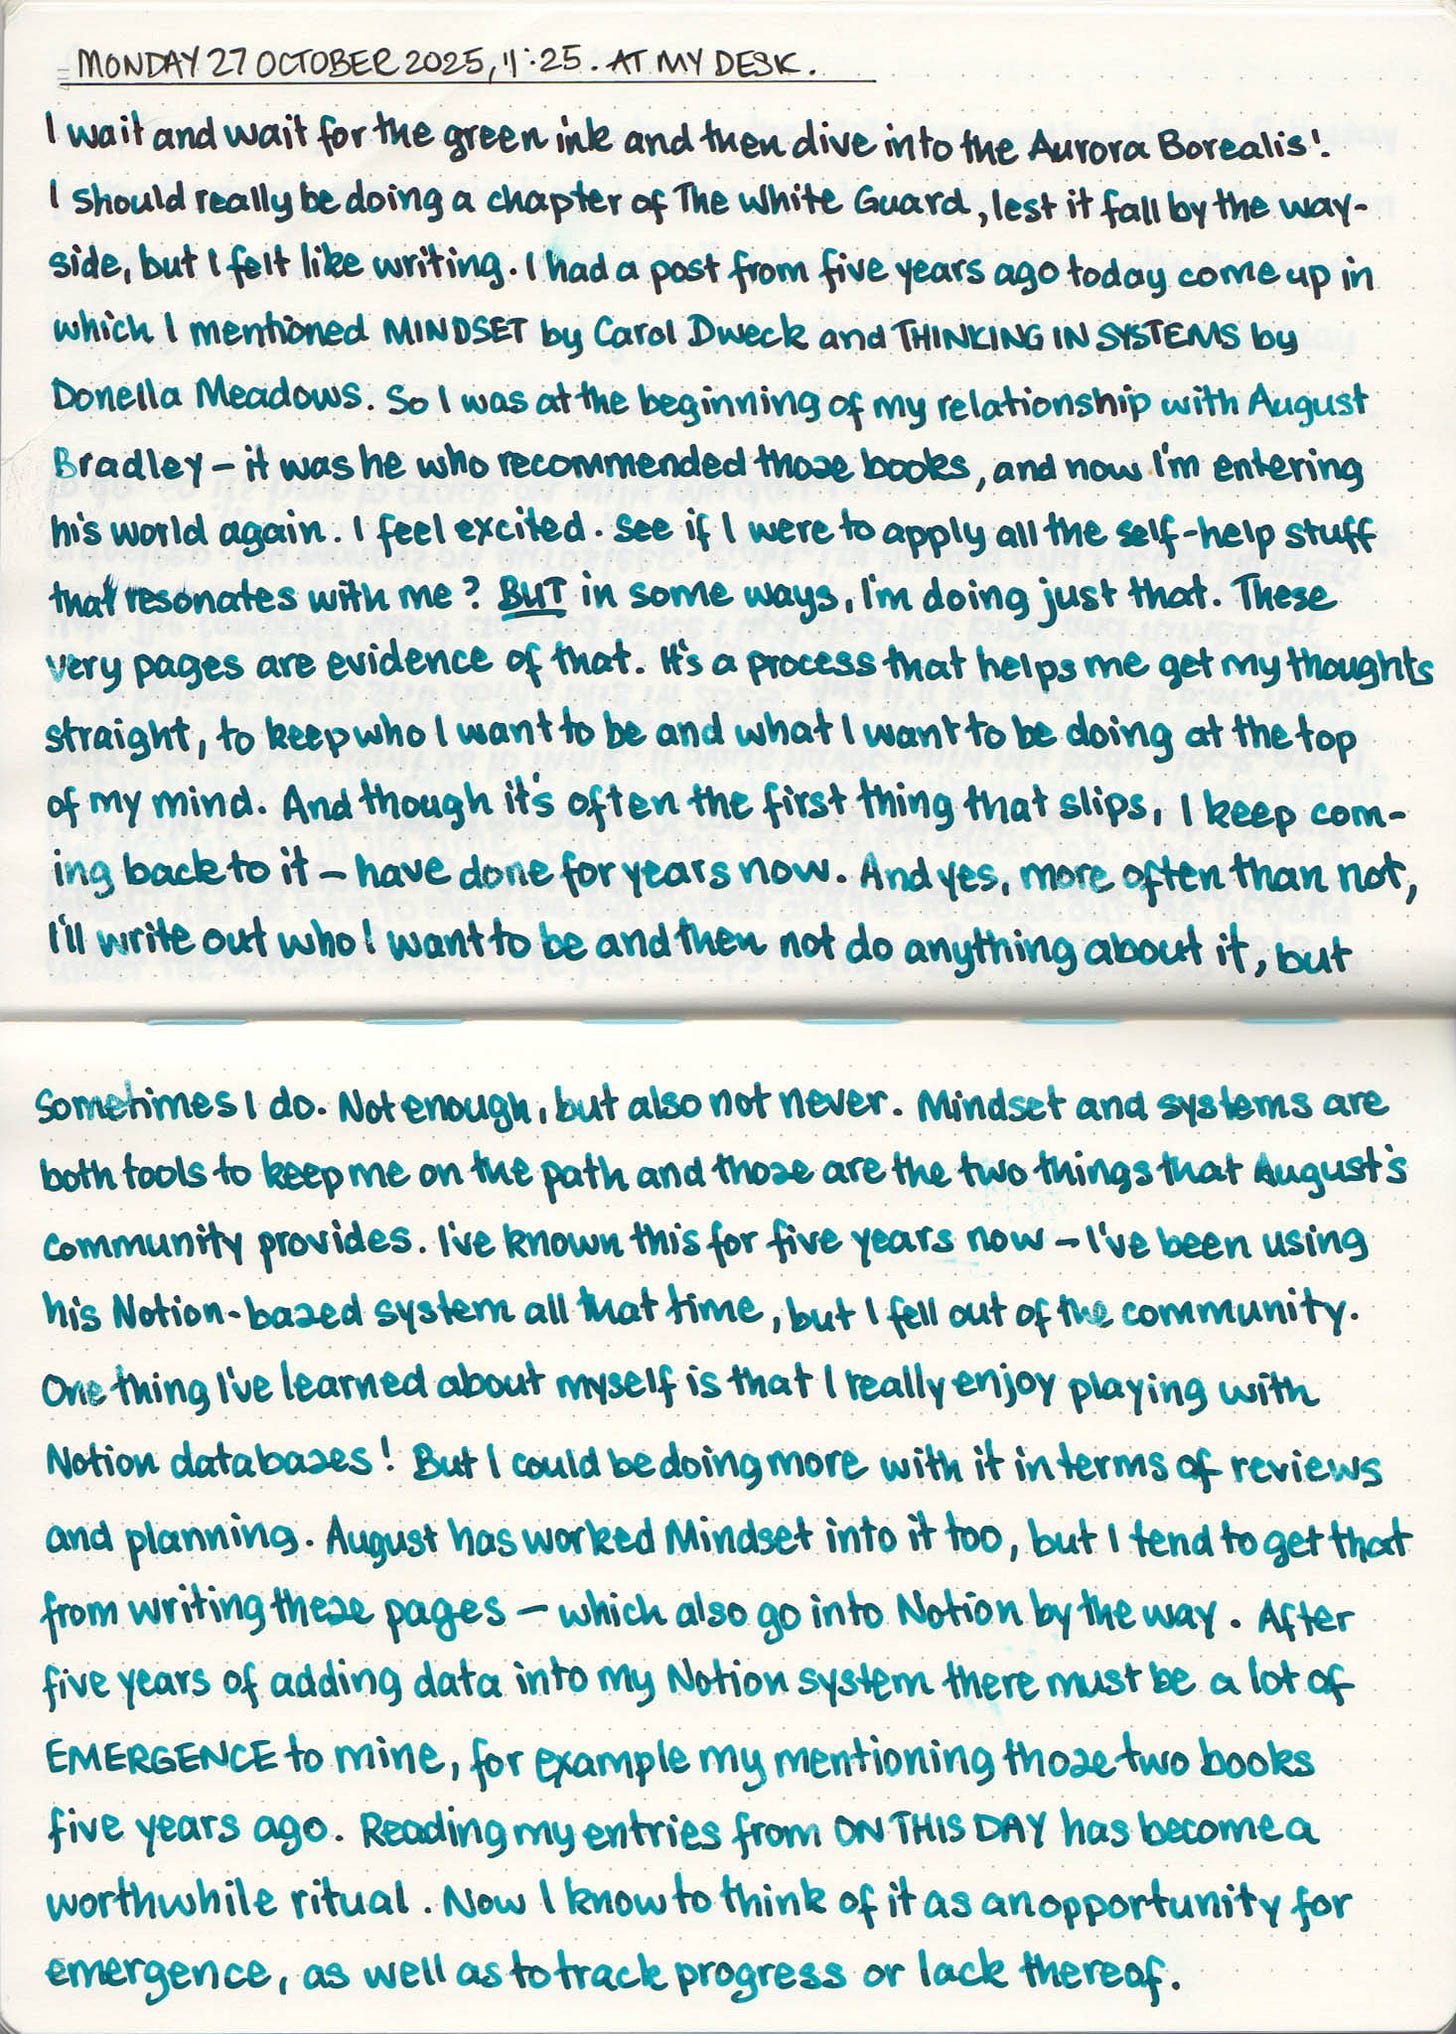 MONDAY 27 OCTOBER 2025, 11:25. AT MY DESK.
I wait and wait for the green ink and then dive into the Aurora Borealis!
I should really be doing a chapter of The White Guard, lest it fall by the way-
side, but I felt like writing. I had a post from five years ago today come up in
which I mentioned MINDSET by Carol Dweck and THINKING IN SYSTEMS by
Donella Meadows. So I was at the beginning of my relationship with August
Bradley – it was he who recommended those books, and now I'm entering
his world again. I feel excited. See if I were to apply all the self-help stuff
that resonates with me? BUT in some ways, I'm doing just that. These
very pages are evidence of that. It's a process that helps me get my thoughts
straight, to keep who I want to be and what I want to be doing at the top
of my mind. And though it's often the first thing that slips, I keep com-
ing back to it – have done for years now. And yes, more often than not,
I'll write out who I want to be and then not do anything about it, but
Sometimes I do. Not enough, but also not never. Mindset and systems are
both tools to keep me on the path and those are the two things that August's
community provides. I've known this for five years now – I've been using
his Notion-based system all that time, but I fell out of the community.
One thing I've learned about myself is that I really enjoy playing with
Notion databases! But I could be doing more with it in terms of reviews
and planning. August has worked Mindset into it too, but I tend to get that
from writing these pages – which also go into Notion by the way. After
five years of adding data into my Notion system there must be a lot of
EMERGENCE to mine, for example my mentioning those two books
five years ago. Reading my entries from ON THIS DAY has become a
worthwhile ritual. Now I know to think of it as an opportunity for
emergence, as well as to track progress or lack thereof.